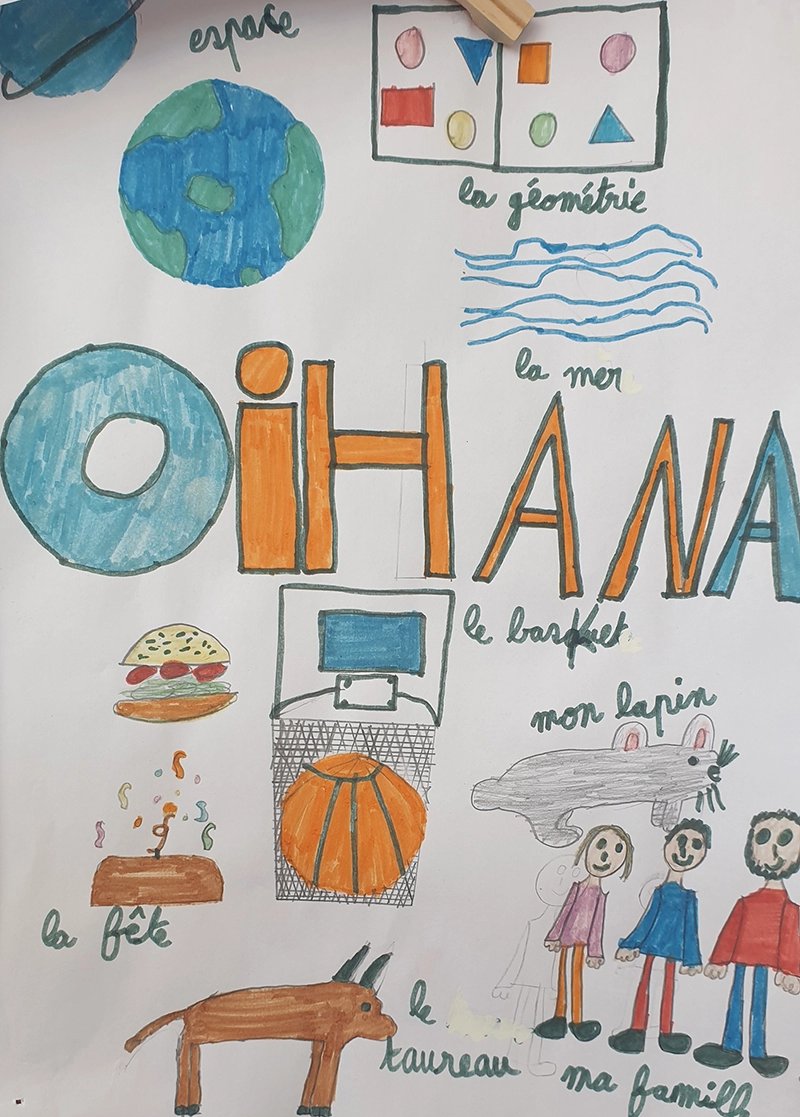 espace
la géométrie
la mer
OiHANA
le basket
mon lapin
9
la fête
le
taureau
ma famill